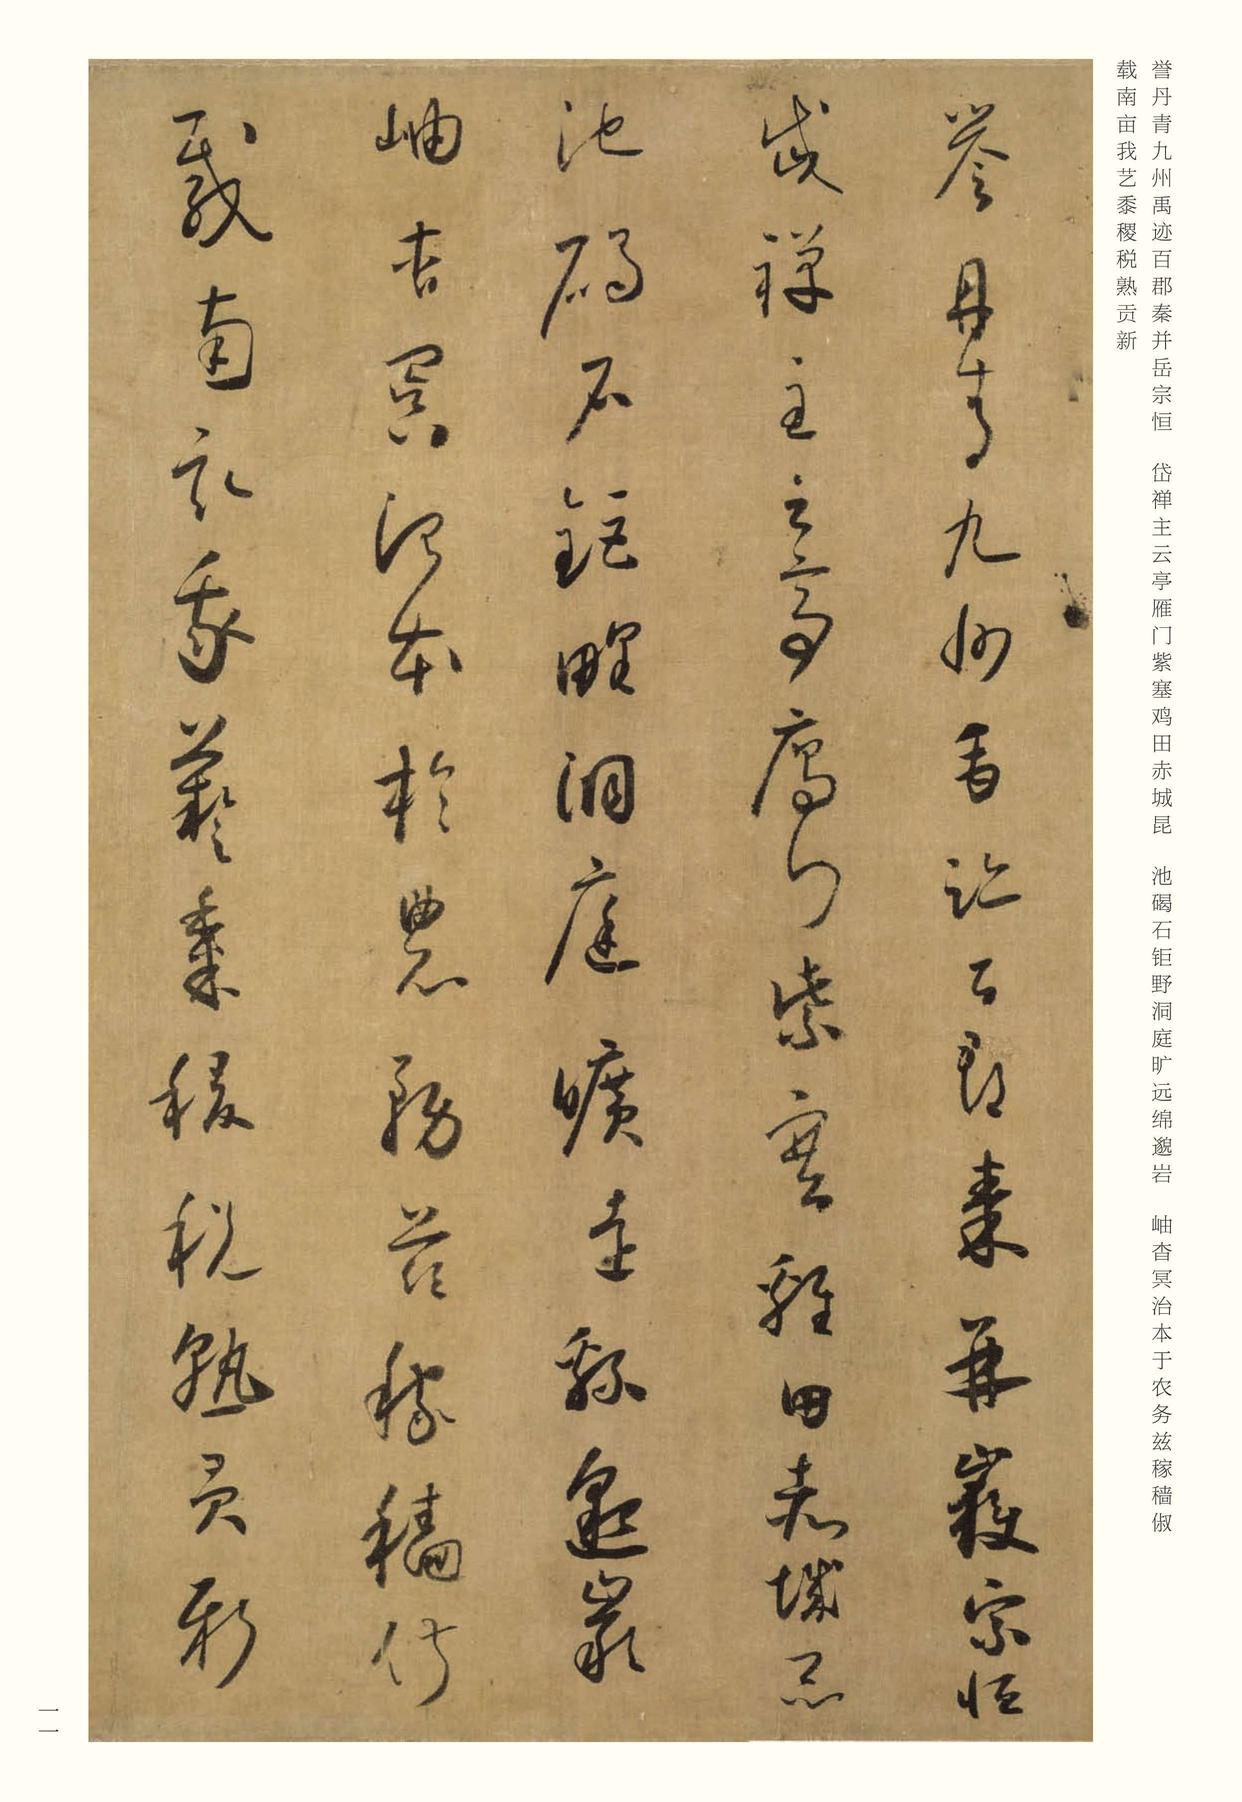 誉丹青九州禹迹百郡秦并岳宗恒　岱禅主云亭雁门紫塞鸡田赤城昆　池碣石钜野洞庭旷远绵邈岩　岫杳冥治本于农务兹稼穑俶
载南亩我艺黍稷税熟贡新
誉丹青九州禹迹百郡秦并嶽宗恒
岱禅主云亭雁门紫塞雞田赤城昆
池碣石鉅野洞庭曠远绵邈巖
岫杳冥治本於農務兹稼穑俶
载南畝我藝黍稷税熟贡新
一一